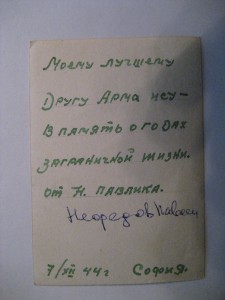 Моему лучшему
Другу Армаису-
В память о годах
заграничной жизни.
от Н. Павлика.
Нефедов Павел
7/XII 44 г София.